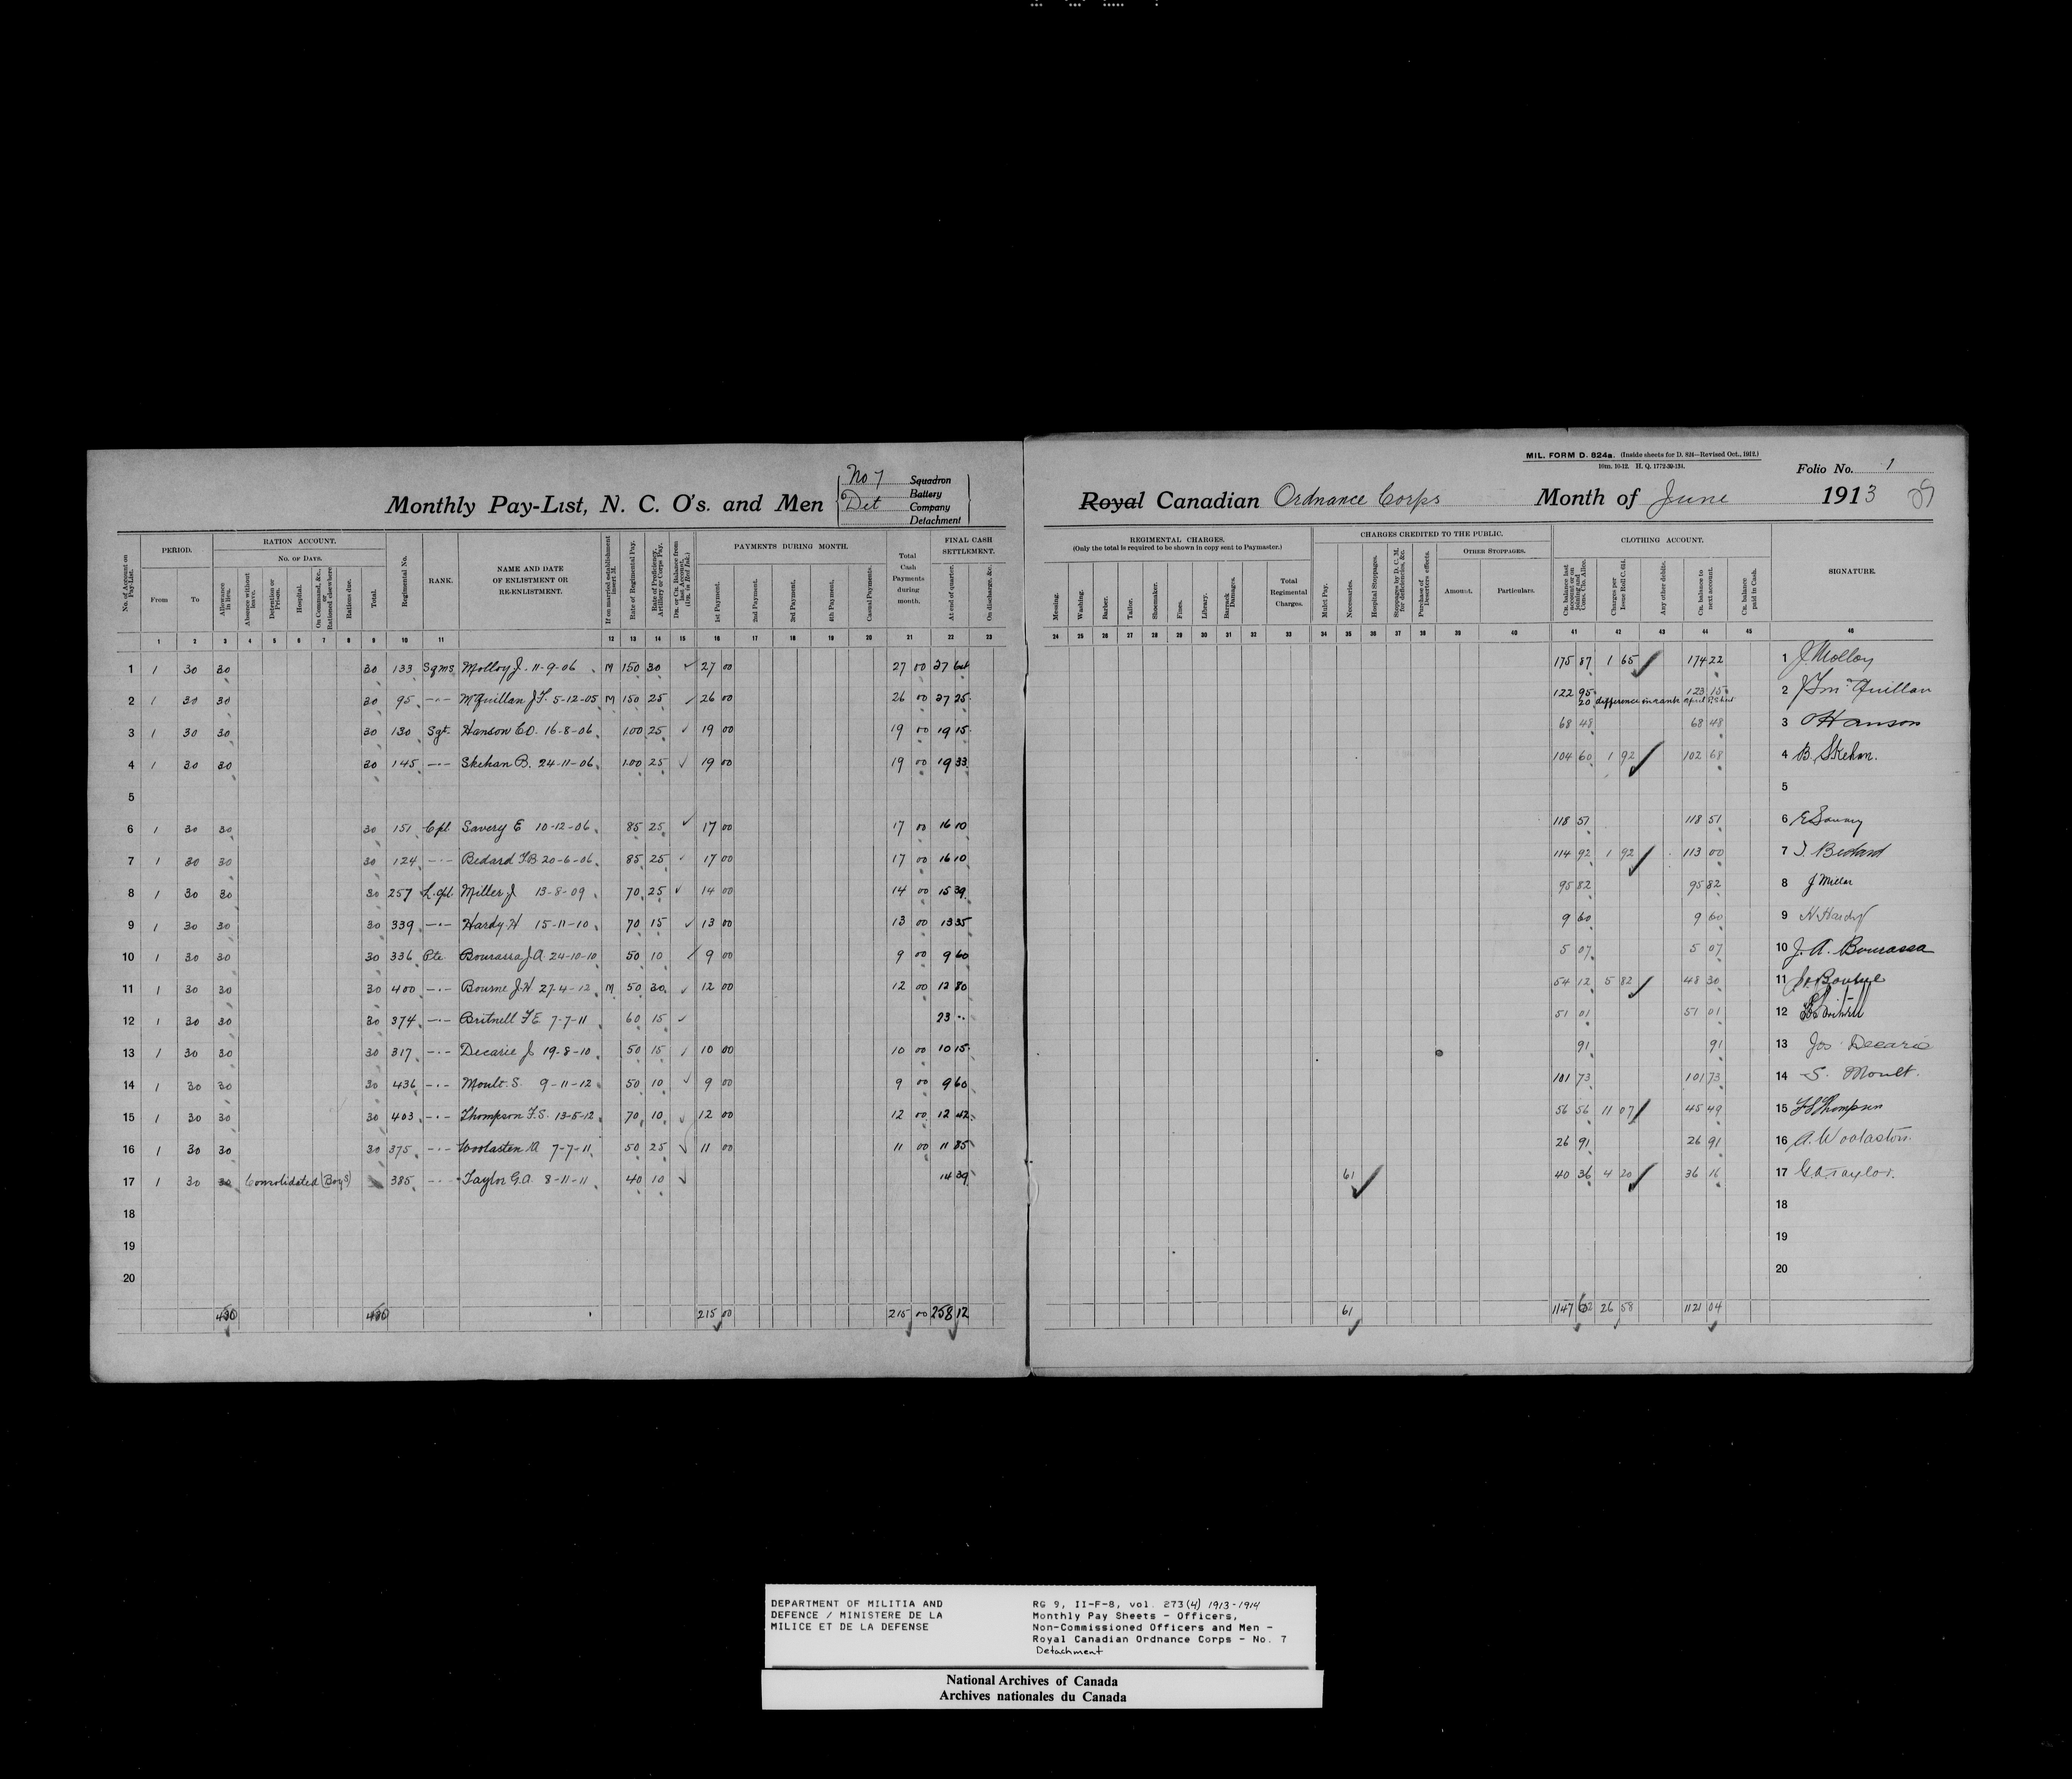 No 7 Squadron
Battery
Det Company
Detachment
Monthly Pay-List, N. C. O's. and Men
MIL. FORM D. 824a. (Inside sheets for D. 824—Revised Oct., 1912.)
10m. 10-12. H. Q. 1772-39-134.
Folio No. 1
Royal Canadian Ordnance Corps Month of June 1913
No. of Account on Pay-List.
PERIOD.
From To
RATION ACCOUNT.
No. of Days.
Allowance in lieu.
Absence without leave.
Detention or Prison.
Hospital.
On Command, &c., or Rationed elsewhere
Rations due.
Total.
Regimental No.
RANK.
NAME AND DATE
OF ENLISTMENT OR
RE-ENLISTMENT.
If on married establishment insert M.
Rate of Regimental Pay.
Rate of Proficiency, Artillery or Corps Pay.
Dr. or Cr. Balance from last Account. (Drs. in Red Ink.)
PAYMENTS DURING MONTH.
1st Payment.
2nd Payment.
3rd Payment.
4th Payment.
Casual Payments.
Total Cash Payments during month.
FINAL CASH SETTLEMENT.
At end of quarter.
On discharge, &c.
REGIMENTAL CHARGES.
(Only the total is required to be shown in copy sent to Paymaster.)
Messing.
Washing.
Barber.
Tailor.
Shoemaker.
Fines.
Library.
Barrack Damages.
Total Regimental Charges.
CHARGES CREDITED TO THE PUBLIC.
Mulct Pay.
Necessaries.
Hospital Stoppages.
Stoppages by D. C. M. for deficiencies, &c.
Purchase of Deserters effects.
OTHER STOPPAGES.
Amount.
Particulars.
CLOTHING ACCOUNT.
Cr. balance last account or on joining and Cons. Clo. Allce.
Charges per Issue Roll C. 614.
Any other debits.
Cr. balance to next account.
Cr. balance paid in Cash.
SIGNATURE.
1 2 3 4 5 6 7 8 9 10 11 12 13 14 15 16 17 18 19 20 21 22 23
24 25 26 27 28 29 30 31 32 33 34 35 36 37 38 39 40 41 42 43 44 45 46
1 1 30 30 30 133 Sgms Molloy J. 11-9-06 M 150 30 27 00 27 00 37 175 87 1 65 174 22 1 J Molloy
2 1 30 30 30 95 -·- McQuillan J.F. 5-12-05 M 150 25 26 00 26 00 37 25 122 95 123 15 2 J F McQuillan
20 difference in rank April
3 1 30 30 30 130 Sgt. Hanson E.O. 16-8-06 100 25 19 00 19 00 19 15 68 48 68 48 3 Hanson
4 1 30 30 30 145 -·- Skehan B. 24-11-06 100 25 19 00 19 00 19 33 104 60 1 92 102 68 4 B. Skehan.
5 5
6 1 30 30 30 151 Cpl Savery E 10-12-06 85 25 17 00 17 00 16 10 118 51 118 51 6 E Savery
7 1 30 30 30 124 -·- Bedard F.B 20-6-06 85 25 17 00 17 00 16 10 114 92 1 92 113 00 7 Bedard
8 1 30 30 30 257 L.Cpl Miller J 13-8-09 70 25 14 00 14 00 15 39 95 82 95 82 8 J Miller
9 1 30 30 30 339 -·- Hardy H 15-11-10 70 15 13 00 13 00 13 35 9 60 9 60 9 H. Hardy
10 1 30 30 30 336 Pte. Bourassa J.A. 24-10-10 50 10 9 00 9 00 9 60 5 07 5 07 10 J. A. Bourassa
11 1 30 30 30 400 -·- Bourne J.H. 27-4-12 M 50 30 12 00 12 00 12 80 54 12 5 82 48 30 11
12 1 30 30 30 374 -·- Britnell F.E. 7-7-11 60 15 23 -- 51 01 51 01 12 Britnell
13 1 30 30 30 317 -·- Decarie J. 19-8-10 50 15 10 00 10 00 10 15 91 91 13 Jos Decarie
14 1 30 30 30 436 -·- Moult. S. 9-11-12 50 10 9 00 9 00 9 60 101 73 101 73 14 S. Moult.
15 1 30 30 30 403 -·- Thompson F.S. 13-5-12 70 10 12 00 12 00 12 42 56 56 11 07 45 49 15 F S Thompson
16 1 30 30 30 375 -·- Woolasten A 7-7-11 50 25 11 00 11 00 11 85 26 91 26 91 16 A. Woolaston.
17 1 30 30 Consolidated (Boys) 385 -·- Taylor G.A. 8-11-11 40 10 14 39 61 40 36 4 20 36 16 17 G.A. Taylor.
18 18
19 19
20 20
450 450 215 00 215 00 258 12 61 1147 62 26 58 1121 04
DEPARTMENT OF MILITIA AND
DEFENCE / MINISTERE DE LA
MILICE ET DE LA DEFENSE
RG 9, II-F-8, vol. 273(4) 1913-1914
Monthly Pay Sheets - Officers,
Non-Commissioned Officers and Men -
Royal Canadian Ordnance Corps - No. 7
Detachment
National Archives of Canada
Archives nationales du Canada